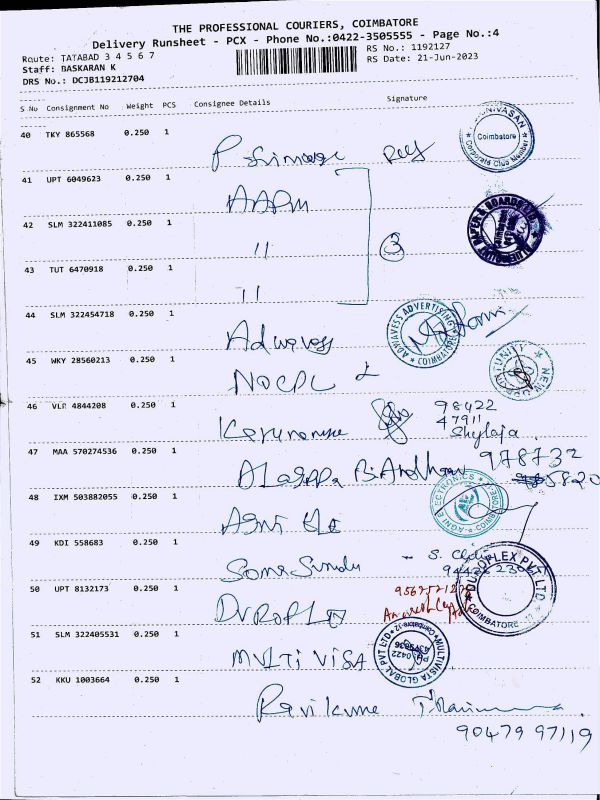 THE PROFESSIONAL COURIERS, COIMBATORE
Delivery Runsheet - PCX - Phone No.:0422-3505555 - Page No.:4
Route: TATABAD 3 4 5 6 7
RS No.: 1192127
Staff: BASKARAN K
RS Date: 21-Jun-2023
DRS No.: DCJB119212704
S No Consignment No Weight PCS Consignee Details Signature
40 TKY 865568 0.250 1
Coimbatore
Corporate Club Member
41 UPT 6049623 0.250 1
AAPM
42 SLM 322411085 0.250 1
11
3
43 TUT 6470918 0.250 1
11
44 SLM 322454718 0.250 1
Adwavess
ADWAVESS ADVERTISING
COIMBATORE
45 WKY 28560213 0.250 1
NOCPL
46 VLR 4844208 0.250 1
98422
47911
Shylaja.
47 MAA 570274536 0.250 1
978732
5820
48 IXM 503882055 0.250 1
Agni Ele
AGNI ELECTRONICS
49 KDI 558683 0.250 1
50 UPT 8132173 0.250 1
DUROPLEX
DUROPLEX PVT LTD
COIMBATORE-12
51 SLM 322405531 0.250 1
MULTI VISA
MULTIVISTA GLOBAL PVT LTD
Coimbatore-12
52 KKU 1003664 0.250 1
Ravikumar
90479 97119